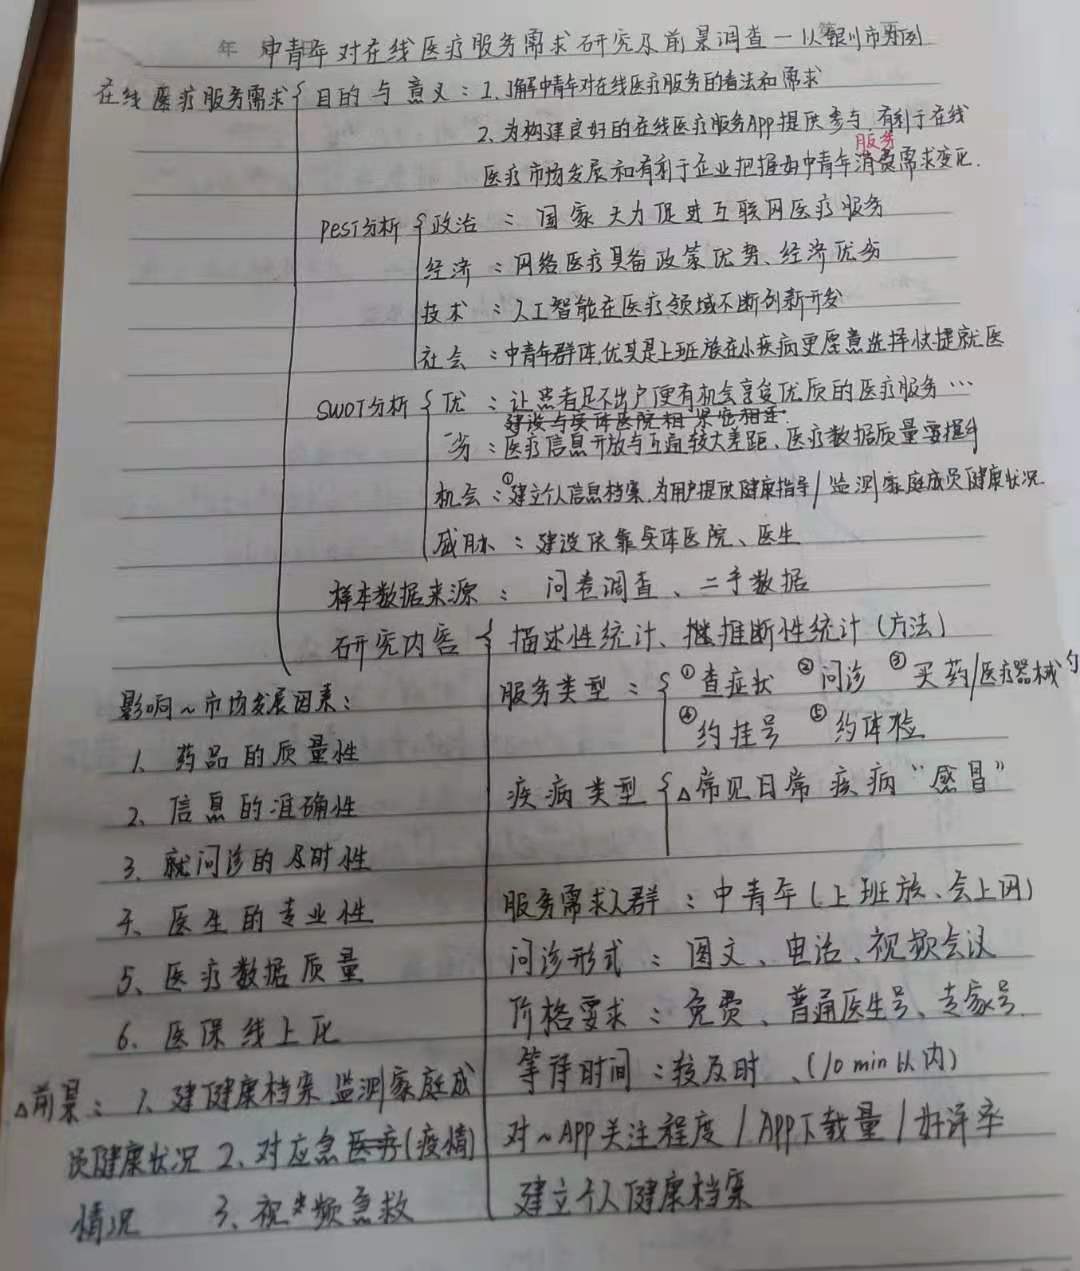 年 中青年对在线医疗服务需求研究及前景调查一以银川市为例
在线医疗服务需求 { 目的与意义：1、了解中青年对在线医疗服务的看法和需求
2、为构建良好的在线医疗服务App提供参与，有利于在线
服务
医疗市场发展和有利于企业把握好中青年消费需求变化.
PesT分析 { 政治：国家大力促进互联网医疗服务
经济：网络医疗具备政策优势、经济优劣
技术：人工智能在医疗领域不断创新开发
社会：中青年群体,尤其是上班族在小疾病更愿意选择快捷就医
SWOT分析 { 优：让患者足不出户便有机会享受优质的医疗服务…
建设与实体医院相 紧密相连.
劣：医疗信息开放与互通较大差距、医疗数据质量要提升
机会：①建立个人信息档案,为用户提供健康指导/监测家庭成员健康状况.
威胁：建设依靠实体医院、医生
样本数据来源：问卷调查、二手数据
研究内容 { 描述性统计、推断性统计（方法）
服务类型：{ ①查症状 ②问诊 ③买药/医疗器械
④约挂号 ⑤约体检
疾病类型 { △常见日常疾病“感冒”
服务需求人群：中青年（上班族、会上网）
问诊形式：图文、电话、视频会议
价格要求：免费、普通医生号、专家号.
等待时间：较及时、（10min以内）
对~App关注程度/App下载量/好评率
建立个人健康档案
影响~市场发展因素：
1、药品的质量性
2、信息的准确性
3、就问诊的及时性
4、医生的专业性
5、医疗数据质量
6、医保线上化
△前景：1、建健康档案监测家庭成
员健康状况 2、对应急医疗（疫情）
情况 3、视频急救